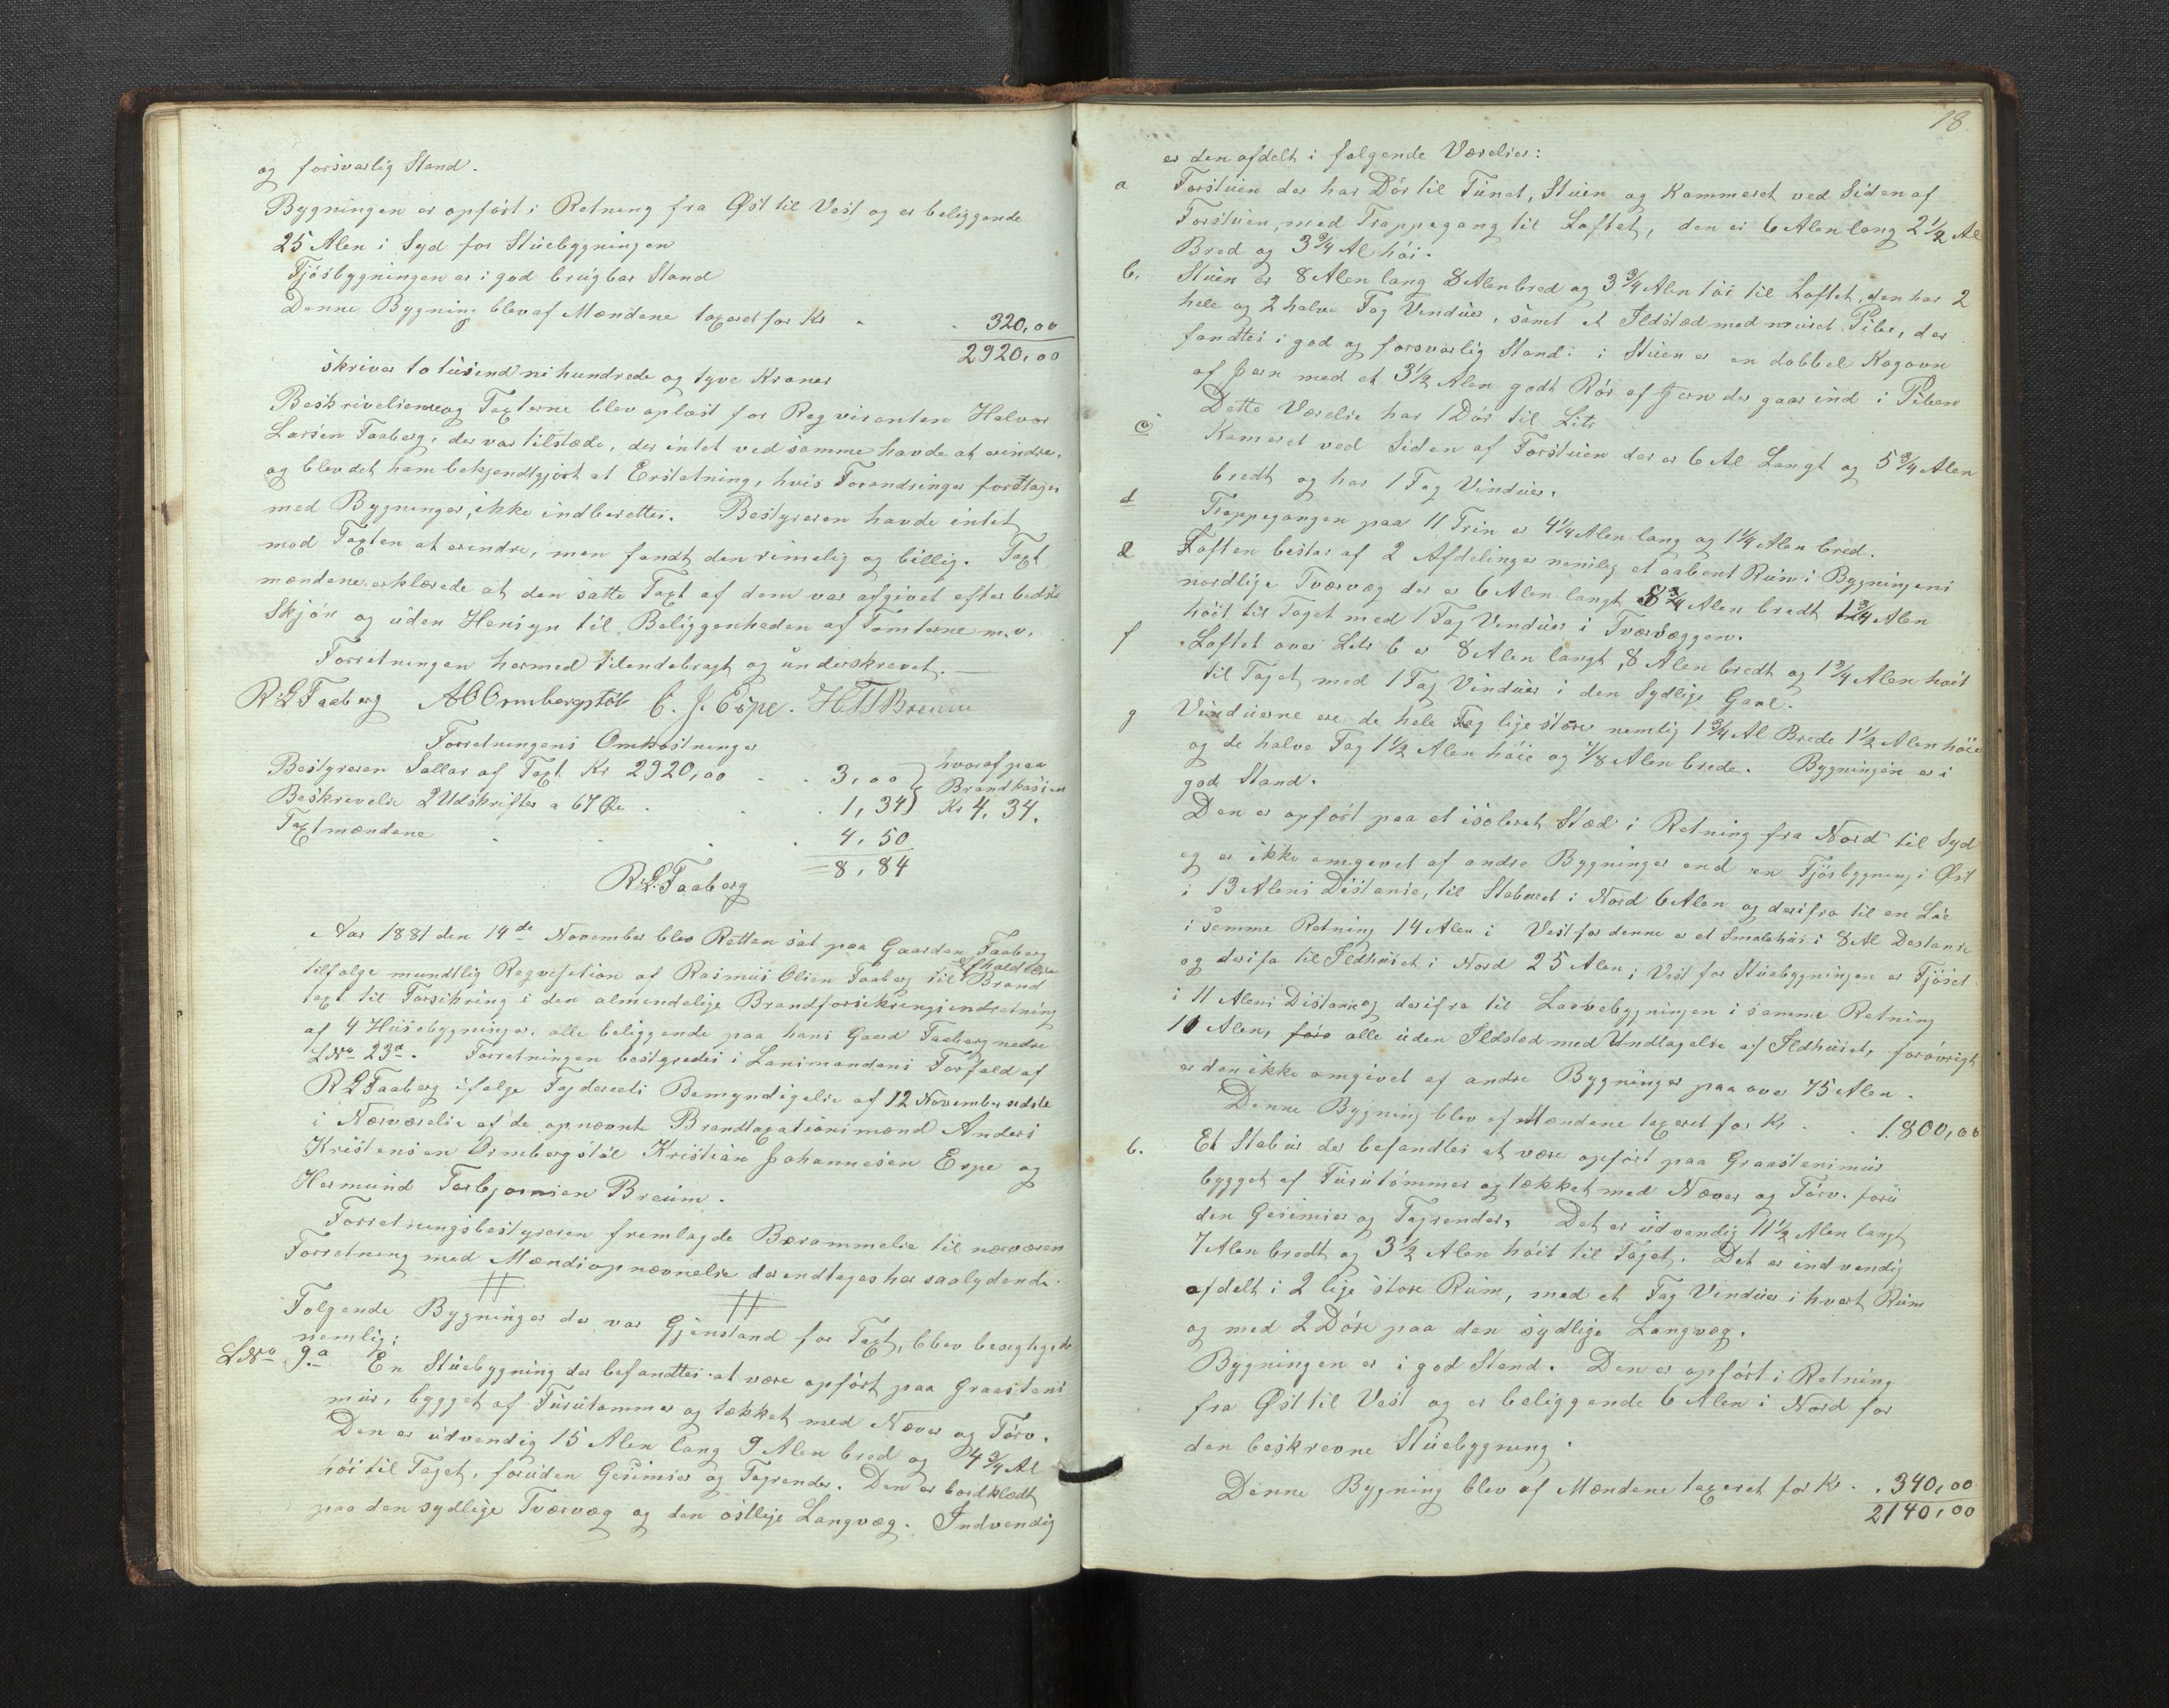 og forsvarlig Stand.
Bygningen er opført i Retning fra Øst til Vest og er beliggende
25 Alen i Syd for Stuebygningen
Fjøsbygningen er i god brugbar Stand
Denne Bygning blev af Mændene taxeret for Kr - - 320,00
2920,00
skriver to tusend ni hundrede og tyve Kroner
Beskrivelserne og Taxterne blev oplæst for Reqvirenten Halvor
Larsen Faaberg, der var tilstæde, der intet ved samme havde at erindre,
og blev det ham bekjendtgjort at Erstatning, hvis Forandringer foretages
med Bygninger, ikke indberettes. Bestyreren havde intet
mod Taxten at erindre, men fandt den rimelig og billig. Taxt
mændene erklærede at den satte Taxt af dem var afgivet efter bedste
Skjøn og uden Hensyn til Beliggenheden af Tomterne m.v.
Forretningen hermed tilendebragt og underskrevet. —
R L Faaberg A O Ormbergstøl C. J. Espe. H T Breum
Forretningens Omkostninger
Bestyreren Sallar af Taxt Kr 2920,00 - - 3,00 } hvoraf paa
Brandkassen
Beskrevelse 2 Udskrifter a 67 Øre - - 1,34 } Kr 4,34.
Taxtmændene - - - 4,50
= 8,84
R L Faaberg
Aar 1881 den 14de November blev Retten sat paa Gaarden Faaberg
tilfølge mundtlig Reqvisition af Rasmus Olsen Faaberg til Afholdelse Brand
taxt til Forsikring i den almindelige Brandforsikringsindretning
af 4 Husebygninger, alle beliggende paa hans Gaard Faaberg nedre
LNo 23a. Forretningen bestyredes i Lensmandens Forfald af
R L Faaberg ifølge Fogderets Bemyndigelse af 12 November sidste
i Nærværelse af de opnævnte Brandtaxationsmænd Anders
Kristensen Ormbergstøl Kristian Johannesen Espe og
Hermund Torbjørnsen Breum.
Forretningsbestyreren fremlagde Berammelse til nærværen
Forretning med Mændsopnævnelse der indtages her saalydende.
# #
Følgende Bygninger der var Gjenstand for Taxt, blev besigtigede
nemlig:
LNo 9a En Stuebygning der befandtes at være opført paa Graastens
mur, bygget af Furutømmer og tækket med Næver og Tørv.
Den er udvendig 15 Alen lang 9 Alen bred og 4 3/4 Al
høi til Taget, foruden Gesimser og Tagrender. Den er bordklædt
paa den sydlige Tværvæg og den østlige Langvæg. Indvendig
18.
er den afdelt i følgende Værelser:
a Forstuen der har Dør til Tunet, Stuen og Kammeret ved Siden af
Forstuen, med Trappegang til Loftet, den er 6 Alen lang 2 1/2 Al
Bred og 3 3/4 Al høi.
b. Stuen er 8 Alen lang 8 Alen bred og 3 3/4 Alen høi til Loftet, den har 2
hele og 2 halve Fag Vinduer, samt et Ildsted med muret Pibe, der
fandtes i god og forsvarlig Stand: i Stuen er en dobbel Kogovn
af Jern med et 3 1/2 Alen godt Rør af Jern der gaar ind i Piben
Dette Værelse har 1 Dør til Litr
c Kameret ved Siden af Forstuen der er 6 Al Langt og 5 3/4 Alen
bredt og har 1 Fag Vinduer.
d Trappegangen paa 11 Trin er 4 1/4 Alen lang og 1 1/4 Alen bred.
e Loften bestar af 2 Afdelinger nemlig et aabent Rum i Bygningens
nordlige Tværvæg der er 6 Alen langt 8 3/4 Alen bredt 1 3/4 Alen
høit til Taget med 1 Fag Vinduer i Tværvæggen.
f Loftet over Litr b er 8 Alen langt, 8 Alen bredt og 1 3/4 Alen høit
til Taget, med 1 Fag Vinduer i den Sydlige Gavl.
g Vinduerne ere de hele Fag lige store nemlig 1 3/4 Al Brede 1 1/2 Alen høie
og de halve Fag 1 1/2 Alen høie og 7/8 Alen brede. Bygningen er i
god Stand.
Den er opført paa et isoleret Sted i Retning fra Nord til Syd
og er ikke omgivet af andre Bygninger end en Fjøsbygning i Øst
i 13 Alens Distanse, til Staburet i Nord 6 Alen og derifra til en Løe
i samme Retning 14 Alen i Vest for denne er et Smalehus i 8 Al Destanse
og derifra til Ildhuset i Nord 25 Alen, i Vest for Stuebygningen er Fjøset
i 11 Alens Distanse og derifra til Laavebygningen i samme Retning
10 Alen, alle uden Ildsted med Undtagelse af Ildhuset, forøvrigt
er den ikke omgivet af andre Bygninger paa over 75 Alen.
Denne Bygning blev af Mændene taxeret for Kr - - 1.800,00
b. Et Stabur der befandtes at være opført paa Graastensmur
bygget af Furutømmer og tækket med Næver og Tørv. foru
den Gesimser og Tagrender. Det er udvendig 11 1/2 Alen langt
7 Alen bredt og 3 1/2 Alen høit til Taget. Det er indvendig
afdelt i 2 lige store Rum, med et Fag Vinduer i hvert Rum
og med 2 Døre paa den sydlige Langvæg.
Bygningen er i god Stand. Den er opført i Retning
fra Øst til Vest og er beliggende 6 Alen i Nord for
den beskrevne Stuebygning.
Denne Bygning blev af Mændene taxeret for Kr - . 340,00
2140,00